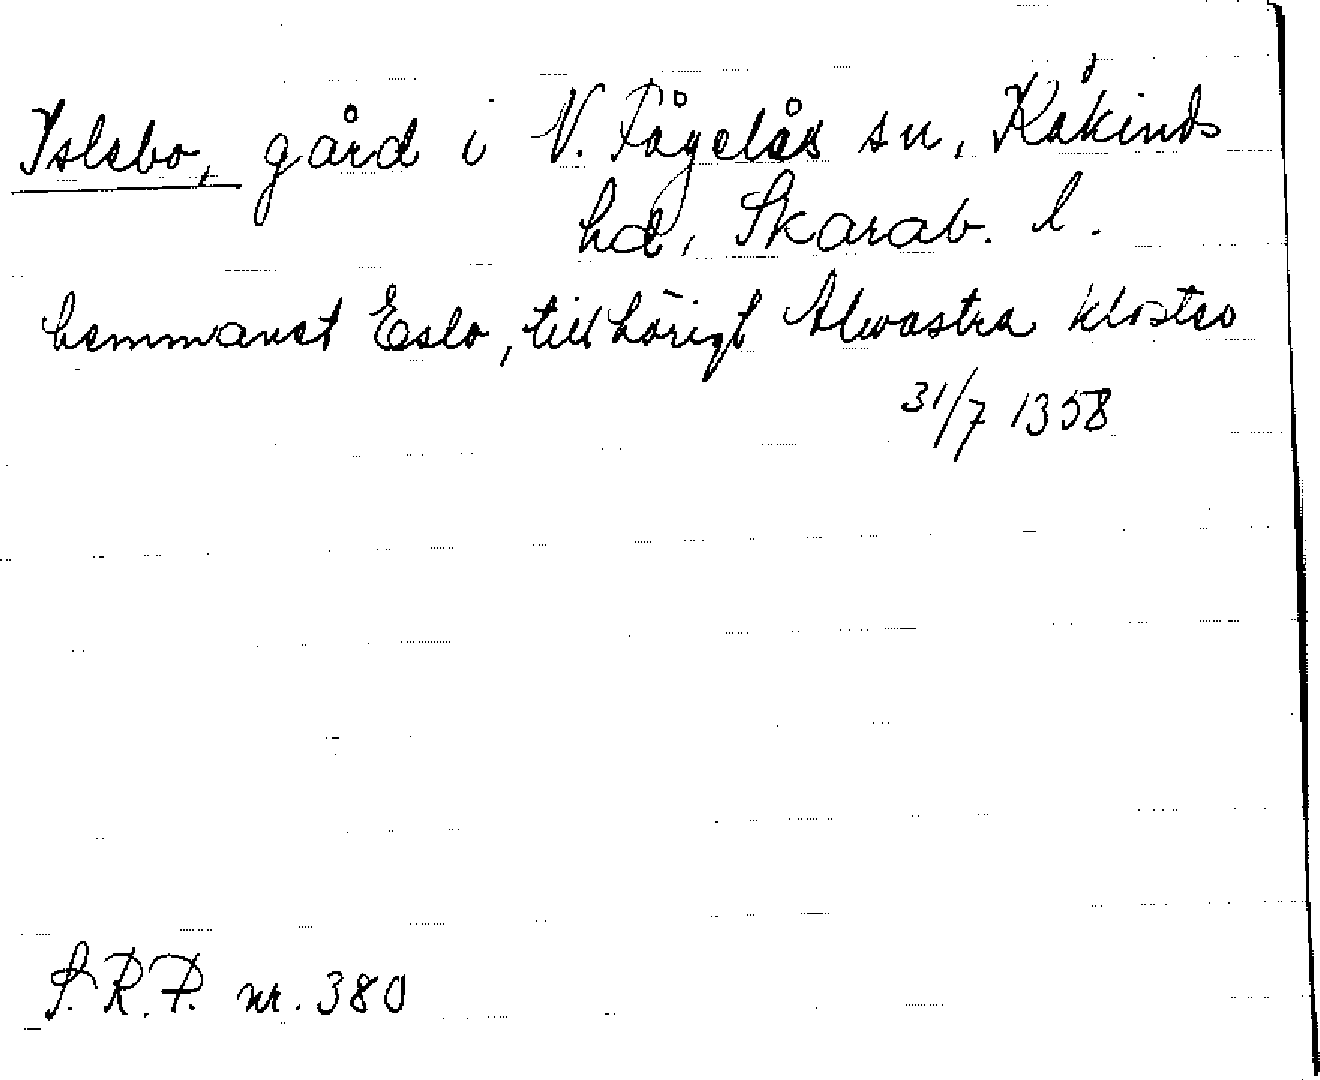 Islebo, gård i V. Fågelås sn, Kåkinds
hd, Skarab. l.
hemmanet Eslo, tillhörigt Alvastra kloster
31/7 1358
S.R.P. nr. 380